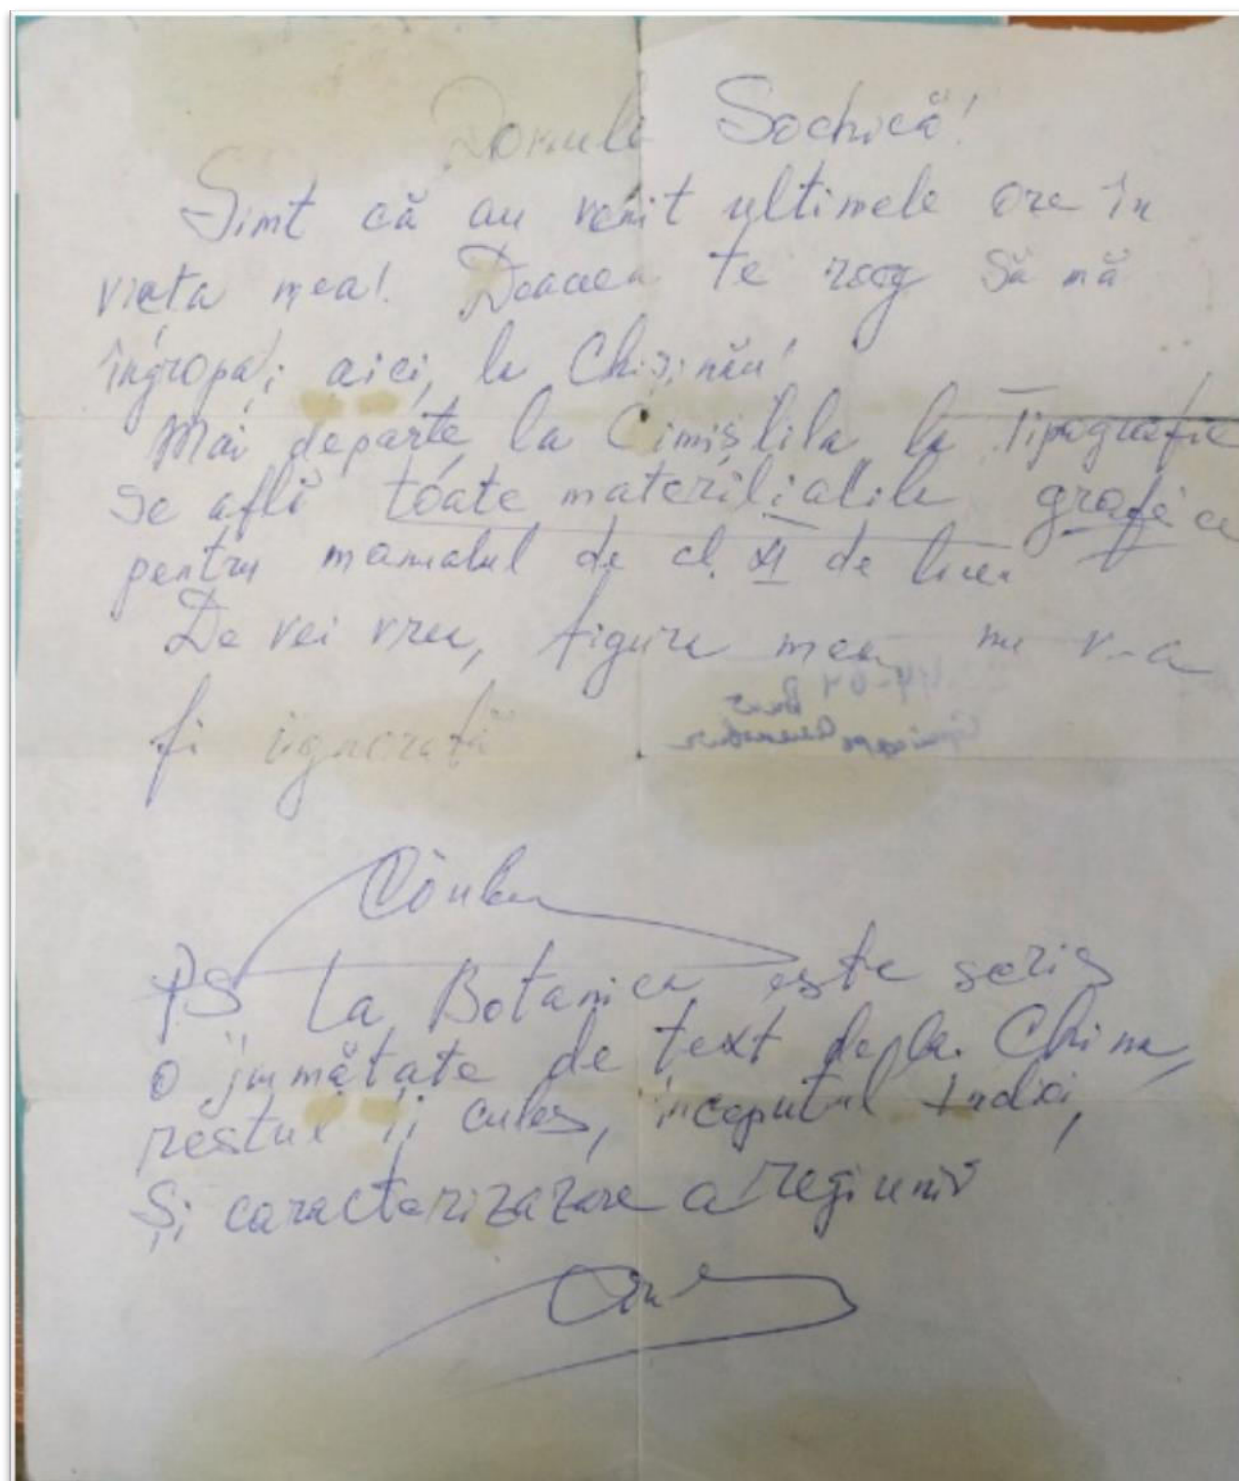 Domule Sochică!
Simt că au venit ultimele ore în
viața mea! Deaceea te rog să mă
îngropați aici, la Chișinău!
Mai departe, la Cimișlila, la Tipografie
se afli toate materilialile grafice
pentru manualul de cl. XI de liceu
De vei vrea, figura mea nu v-a
fi ignorată
PS La Botanica este scris
o jumătate de text de la China,
restul îi cules, începutul Indiei,
Și caracterizazare a regiuniv